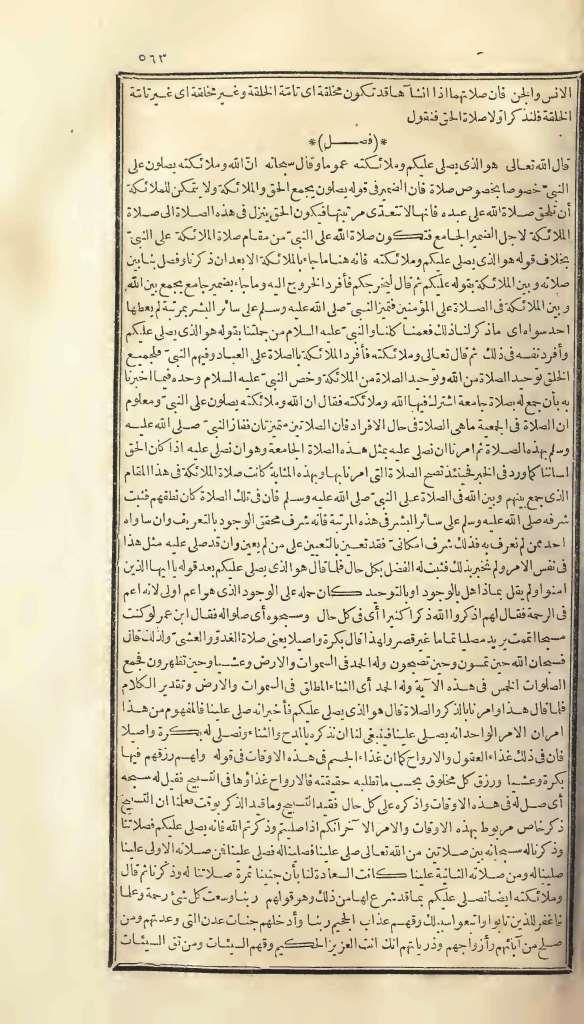 ٥٦٣
الانس والجن فان صلاتهما اذا انشآها قد تكون مخلقة اى تامة الخلقة وغير مخلقة اى غير تامة
الخلقة فلنذكر اولا صلاة الحق فنقول
*(فصل)*
قال الله تعالى هو الذى يصلى عليكم وملائكته عموما وقال سبحانه ان الله وملائكته يصلون على
النبى خصوصا بخصوص صلاة فان الضمير فى قوله يصلون يجمع الحق والملائكة ولا يتمكن للملائكة
أن تلحق صلاة الله على عبده فانها لا تتعدى مرتبتها فيكون الحق ينزل فى هذه الصلاة الى صلاة
الملائكة لاجل الضمير الجامع فتكون صلاة الله على النبى من مقام صلاة الملائكة على النبى
بخلاف قوله هو الذى يصلى عليكم وملائكته فانه هنا ما جاء بالملائكة الا بعد ان ذكرنا وفصل بنا بين
صلاته وبين الملائكة بقوله عليكم ثم قال ليخرجكم فأفرد الخروج اليه وما جاء بضمير جامع يجمع بين الله
وبين الملائكة فى الصلاة على المؤمنين فتميز النبى صلى الله عليه وسلم على سائر البشر بمرتبة لم يعطها
احد سواه اى ما ذكر لنا ذلك فعمنا كلنا والنبى عليه السلام من جملتنا بقوله هو الذى يصلى عليكم
وأفرد نفسه فى ذلك ثم قال تعالى وملائكته فأفرد الملائكة بالصلاة على العباد وفيهم النبى فلجميع
الخلق توحيد الصلاة من الله وتوحيد الصلاة من الملائكة وخص النبى عليه السلام وحده فيما اخبرنا
به بأن جمع له بصلاة جامعة اشترك فيها الله وملائكته فقال ان الله وملائكته يصلون على النبى ومعلوم
ان الصلاة فى الجمعية ماهى الصلاة فى حال الافراد فان الصلاتين متميزتان ففاز النبى صلى الله عليه
وسلم بهذه الصلاة ثم امرنا ان نصلى عليه بمثل هذه الصلاة الجامعة وهو ان نصلى عليه اذا كان الحق
لساننا كما ورد فى الخبر فحينئذ تصح الصلاة التى امرنا بها وبهذه المثابة كانت صلاة الملائكة فى هذا المقام
الذى جمع بينهم وبين الله فى الصلاة على النبى صلى الله عليه وسلم فان فى تلك الصلاة كان نطقهم فثبت
شرفه صلى الله عليه وسلم على سائر البشر فى هذه المرتبة فانه شرف محقق الوجود بالتعريف وان ساواه
احد ممن لم نعرف به فذلك شرف امكانى فقد تعين بالتعيين على من لم يعين وان قد صلى عليه مثل هذا
فى نفس الامر ولم نخبر بذلك فثبت له الفضل بكل حال فلما قال هو الذى يصلى عليكم بعد قوله يا ايها الذين
امنوا ولم يقل بماذا هل بالوجود او بالتوحيد كان حمله على الوجود الذى هو اعم اولى لانه اعم
فى الرحمة فقال لهم اذكروا الله ذكرا كثيرا أى فى كل حال وسبحوه أى صلوا له فقال ابن عمر لو كنت
مسبحا اتممت يريد مصليا تماما غير قصر ولهذا قال بكرة واصيلا يعنى صلاة الغدو والعشى ولذلك قال
فسبحان الله حين تمسون وحين تصبحون وله الحمد فى السموات والارض وعشيا وحين تظهرون فجمع
الصلوات الخمس فى هذه الآية وله الحمد أى الثناء المطلق فى السموات والارض وتقدير الكلام
فلما قال هذا وامرنا بالذكر والصلاة قال هو الذى يصلى عليكم فأخبر انه صلى علينا فالمفهوم من هذا
امران الامر الواحد انه يصلى علينا فينبغى لنا ان نذكره بالمدح والثناء ونصلى له بكرة واصيلا
فان فى ذلك غذاء العقول والارواح كما ان غذاء الجسم فى هذه الاوقات فى قوله ولهم رزقهم فيها
بكرة وعشيا ورزق كل مخلوق بحسب ما تطلبه حقيقته فالارواح غذاؤها فى التسبيح فقيل له سبحه
أى صل له فى هذه الاوقات واذكره على كل حال فقيد التسبيح وما قيد الذكر بوقت فعلمنا ان التسبيح
ذكر خاص مربوط بهذه الاوقات والامر الآخر انكم اذا صليتم وذكرتم الله فانه يصلى عليكم فصلاتنا
وذكرنا له سبحانه بين صلاتين من الله تعالى صلى علينا فصلينا له فصلى علينا فمن صلاته الاولى علينا
صلينا له ومن صلاته الثانية علينا كانت السعادة لنا بأن جنينا ثمرة صلاتنا له وذكرنا ثم قال
وملائكته ايضا تصلى عليكم بما قد شرع لها من ذلك وهو قولهم ربنا وسعت كل شئ رحمة وعلما
فاغفر للذين تابوا واتبعوا سبيلك وقهم عذاب الجحيم ربنا وأدخلهم جنات عدن التى وعدتهم ومن
صلح من آبائهم وأزواجهم وذرياتهم انك انت العزيز الحكيم وقهم السيئات ومن تق السيئات